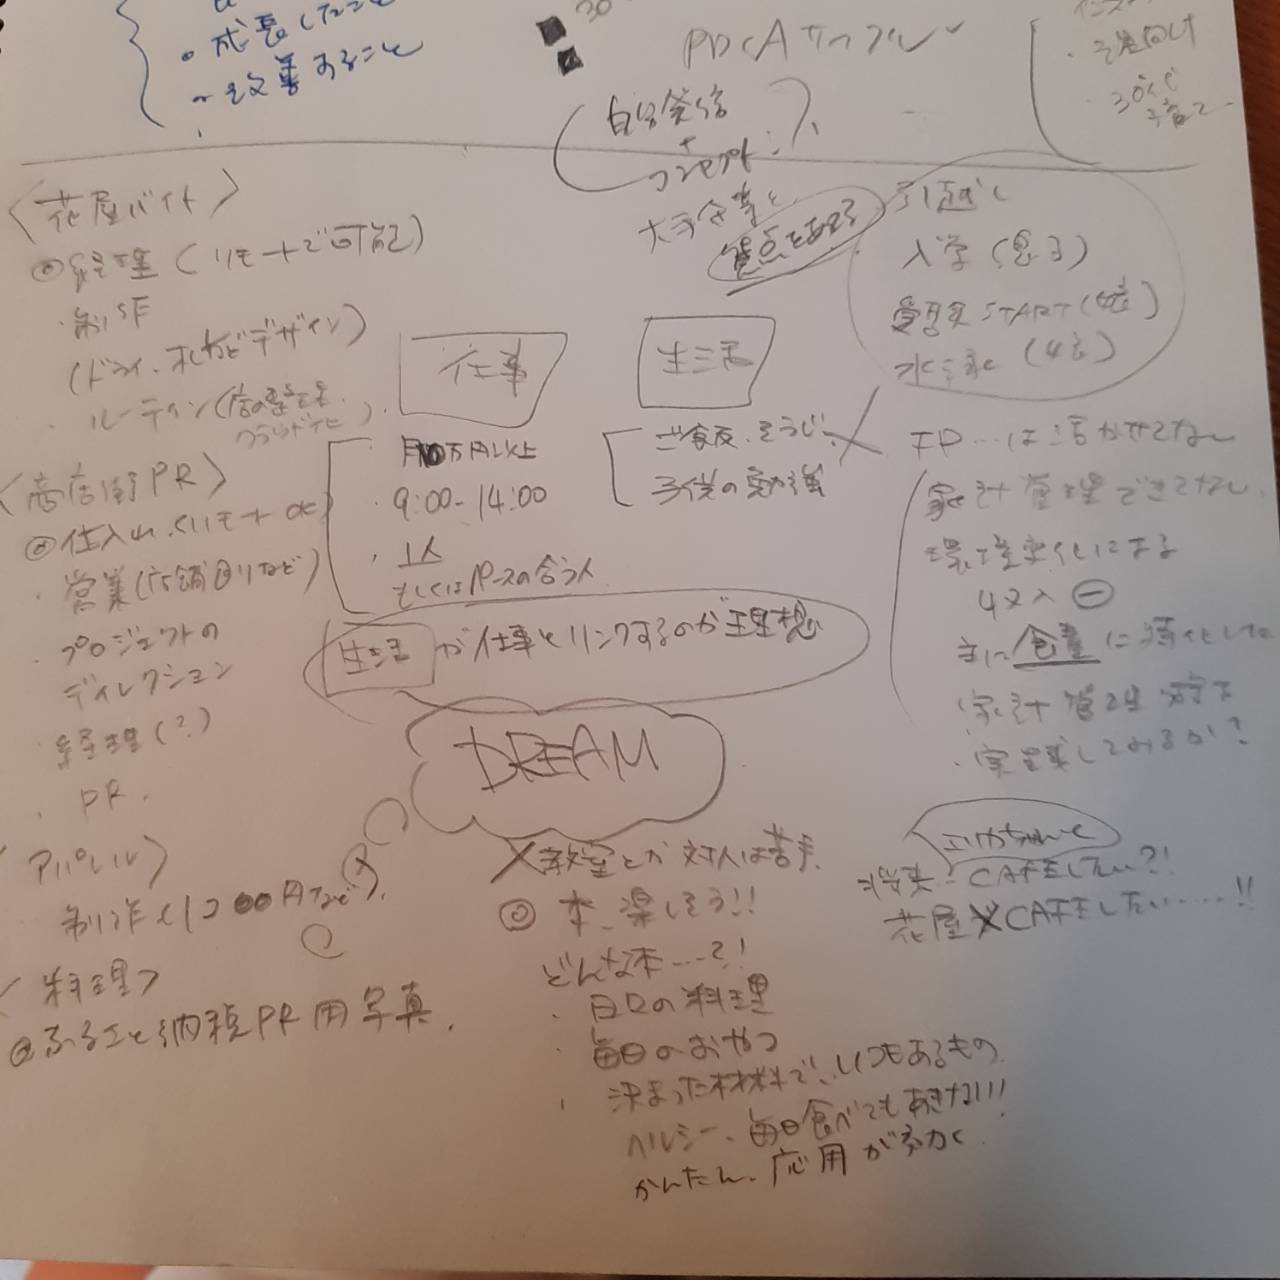 ・成長したこと
・改善すること
30
PDCAサイクル
自分発信
+
コンセプト?
主婦向け
30代
子育て
大手企業と
〈花屋バイト〉
◎経理(リモートで可能)
・制作
(ドライ、木などデザイン)
ルーティン(店の
〈商店街PR〉
◎仕入れ
・営業(店舗回りなど)
・プロジェクトの
ディレクション
・経理(?)
・PR.
〈アパレル〉
制作
〈料理〉
◎ふるさと納税PR用写真.
仕事
月10万円以上
・9:00-14:00
・1人
もしくはペースの合う人
生活
ご食反、そうじ、
子供の勉強
生活が仕事とリンクするのが理想
DREAM
引越し
入学(息子)
START
FP…は活かせてない
家計管理できてない
環境変化による
収入⊖
主に食費に
家計管理
実践してみるか?
将来…CAFEしたい?!
花屋×CAFEしたい……!!
×教室とか対人は苦手.
◎本、楽しそう!!
どんな本…?!
・日々の料理
・毎日のおやつ
・決まった材料で、いつもあるもの
ヘルシー、毎日食べてもあきない!!
かんたん、応用がきく